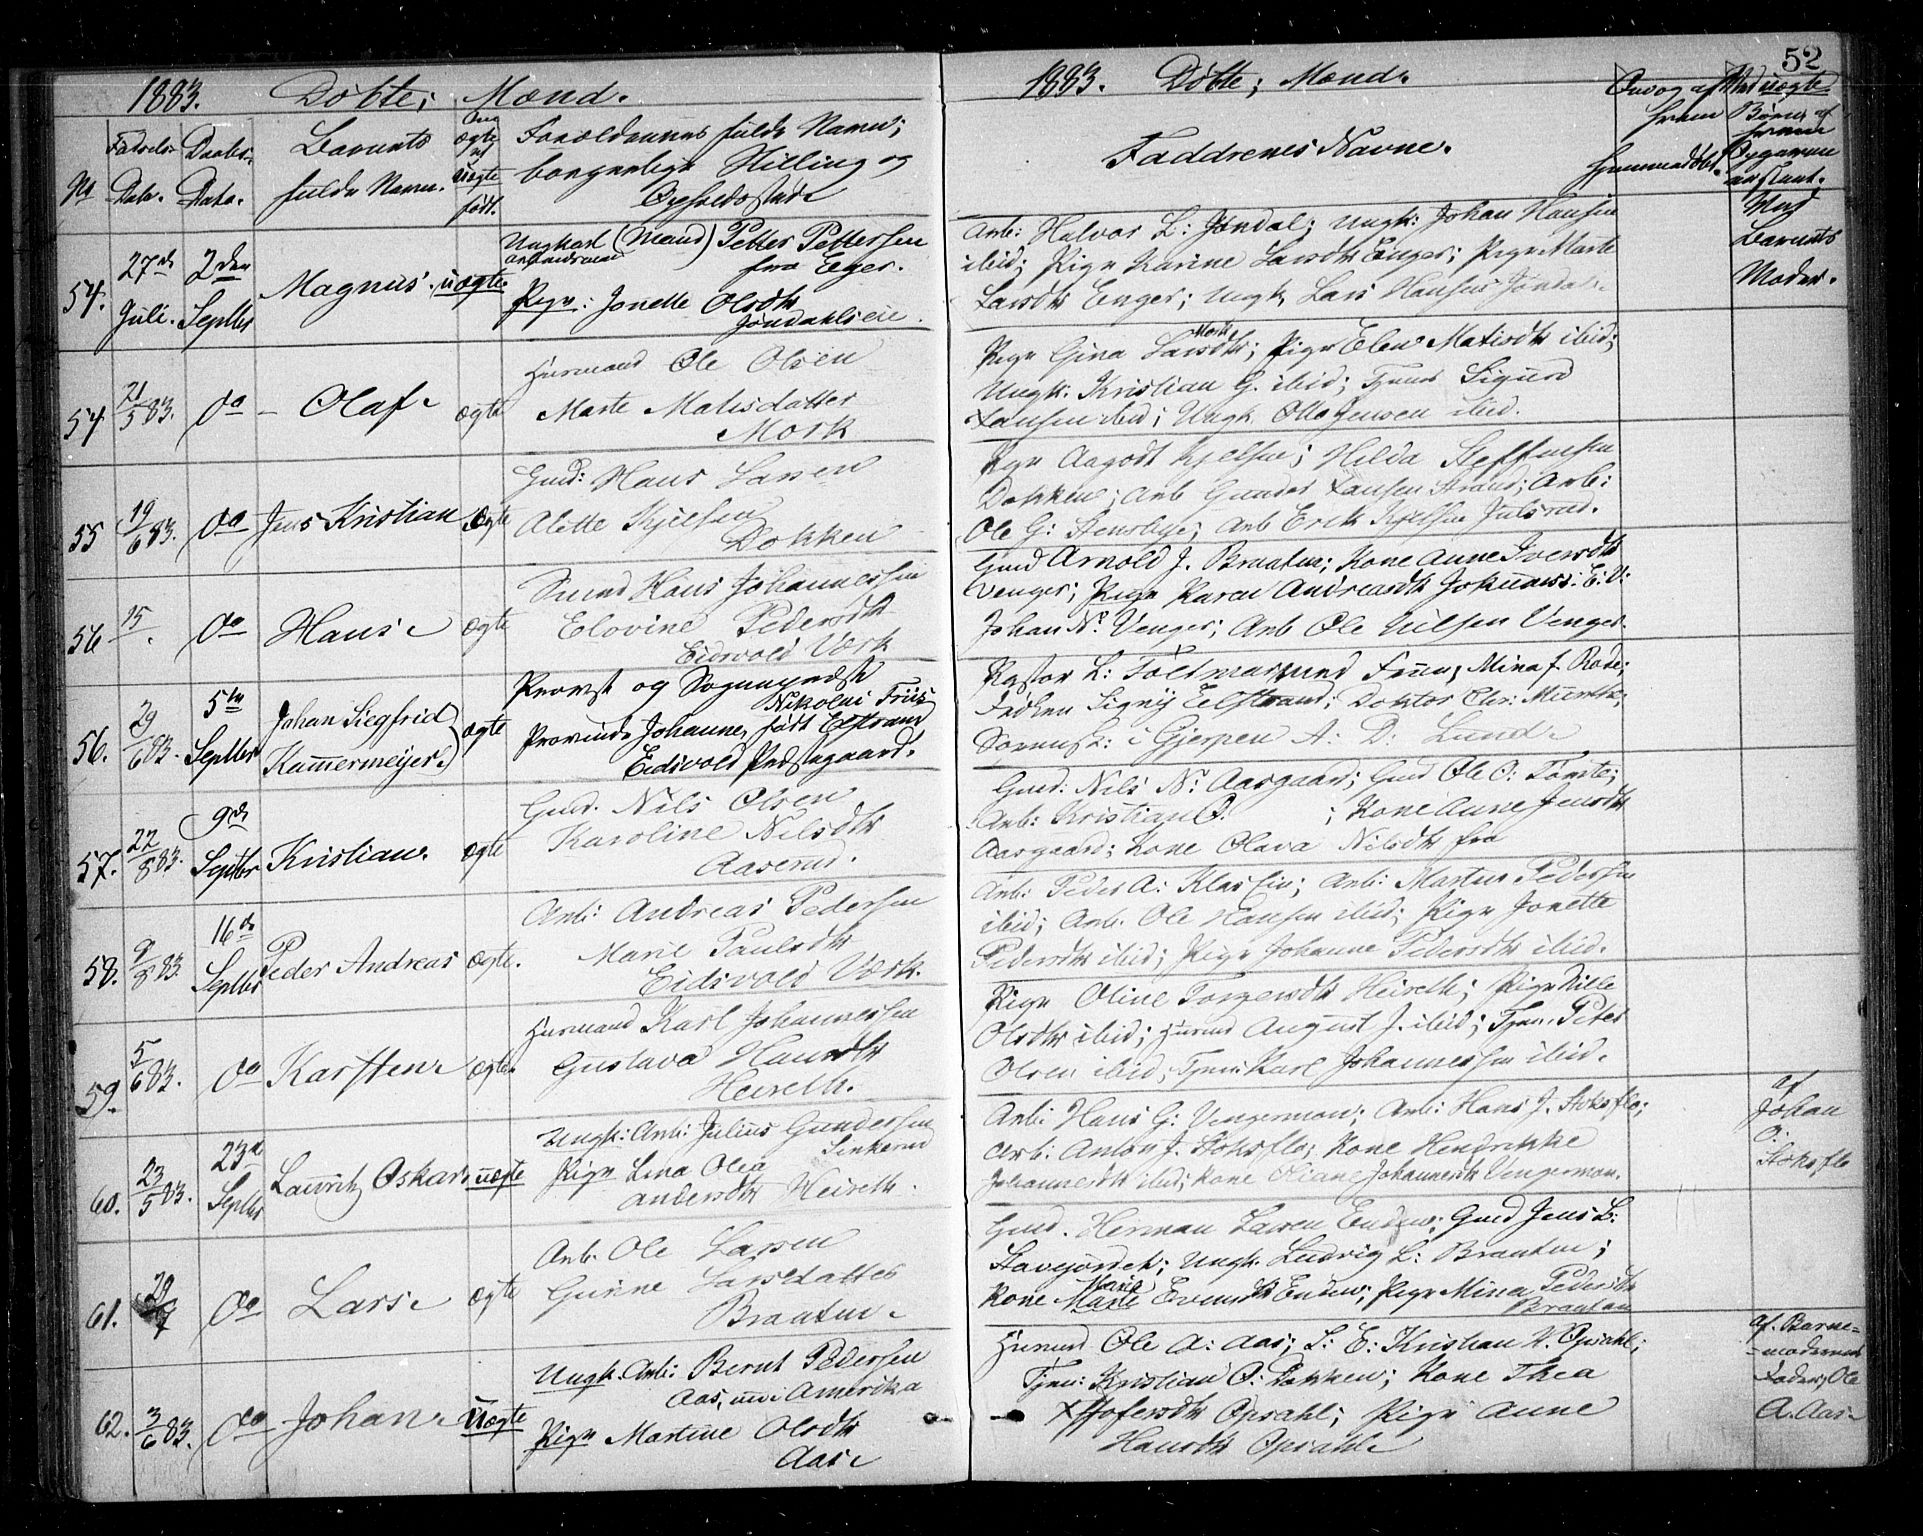 1883. Døbte; Mænd.
No
Fødsels-
Dato.
Daabs-
Dato.
Barnets
fulde Navn.
Om
ægte
el
uægte
født.
Forældrenes fulde Navn;
borgerlige Stilling og
Opholdssted
54.
27de
Juli.
2den
Septbr
Magnus.
uægte
Ungkarl (Mand) Petter Pettersen
fra Eger.
Pige: Jonette Olsdtr
Jøndahlseie.
54
21/5 83.
do
Olaf.
ægte
Huusmand Ole Olsen
Marte Matisdatter
Mork
55
19/6 83.
do
Jens Kristian
Ægte
Gmd: Hans Larsen
Alette Kjelsen
Dokken
56.
15/
do
Hans.
ægte
Smed Hans Johannessen
Elovine Pedersdtr
Eidsvold Værk
56.
29/6 83.
5te
Septbr
Johan Siegfrid
Kammermeijer.
ægte
Provst og Sogneprest
Nikolai Friis
Provinde Johanne, født Eelstrand
Eidsvold Prestegaard.
57.
22/8 83.
9de
Septbr
Kristian.
ægte
Gmd. Nils Olsen
Karoline Nilsdtr
Aaserud.
58.
9/8 83.
16de
Septbr
Peder Andreas
Ægte.
Arb: Andreas Pedersen
Marie Paulsdtr
Eidsvold Værk.
59.
5/6 83.
do
Karsten.
Ægte.
Husmand Karl Johannessen
Gustava Hansdtr
Heireth.
60.
23/5 83.
23de
Septbr
Lauritz Oskar.
uægte
Ungk: Arb: Julius Gundersen
Sinkerud
Pige Lina Olea
Andersdtr Heireth.
61.
do
Lars.
ægte
Arb. Ole Larsen
Gurine Larsdatter
Braaten.
62.
3/6 83.
do
Johan.
Uægte
Ungk. Arb: Bernt Pedersen
Aas, nu i Amerika
Pige Martine Olsdtr
Aas.
52
1883. Døbte; Mænd.
Faddrenes Navne.
Hjemmedøbt.
Ved uægte
Børn, af
hvem
Opgaven
Arb: Halvor L: Jøndal; Ungk: Johan Hansen
ibid; Pige Karine Larsdtr Enger; Pige Marte
Larsdtr Enger; Ungk. Lars Hansen Jøndal.
Barnets
Moder.
Pige Gina Larsdtr Mork; Pige Elen Matisdtr ibid;
Ungk. Kristian G. ibid; Tjener Sigurd
Hansen ibid; Ungk. Otto Jensen ibid.
Pige Aagodt Kjelsen; Hilda Steffensen
Dokken; Arb Gunder Hansen Strand; Arb:
Ole G: Stensbye; Arb Erik Kjelsen Julsrud.
Gmd Arnold J. Braaten; Kone Anne Iversdtr
Venger; Pige Karen Andreasdtr E: V:
Johan N. Venger; Arb Ole Nilsen Venger.
Pastor L: Føltmar med Frue, Mina f. Rode;
Frøken Signy Eelstrand; Doktor Chr: Munthe;
Sognepr: i Gjerpen A. D. Lund.
Gmd: Nils N. Aasgaard; Gmd Ole O: Tømte;
Arb: Kristian O. ; Kone Anne Jensdtr
Aasgaard; Kone Olava Nilsdtr fra
Arb: Peder A: Klassen; Arb: Martin Pedersen
ibid; Arb. Ole Hansen ibid; Pige Jonette
Pedersdtr ibid; Pige Johanne Pedersdtr ibid.
Pige Oline Torgersdtr Heireth; Pige Nille
Olsdtr ibid; Husmd August J. ibid; Tjen. Peter
Olsen ibid; Tjen: Karl Johannessen ibid.
Arb: Hans G: Vengermoen; Arb: Hans J. Stoksflo;
Arb: Anton J. Stoksflo; Kone Hendrikke
Johannesdtr ibid; Kone Oliane Johannesdtr Vengermoen.
af
Johan
O.
Stoksflo
Gmd. Herman Larsen Enden; Gmd Jens L:
Ungk. Ludvig L: Braaten;
Kone Marie Evensdtr Enden; Pige Mina Pedersdtr
Braaten
Husmd Ole A: Aas; S: E: Kristian K. Opsahl;
Tjen: Kristian O: Dokken; Kone Thea
Opsahl; Pige Anne
Hansdtr Opsahl.
Af Barne-
-moderens
Fader, Ole
A. Aas.